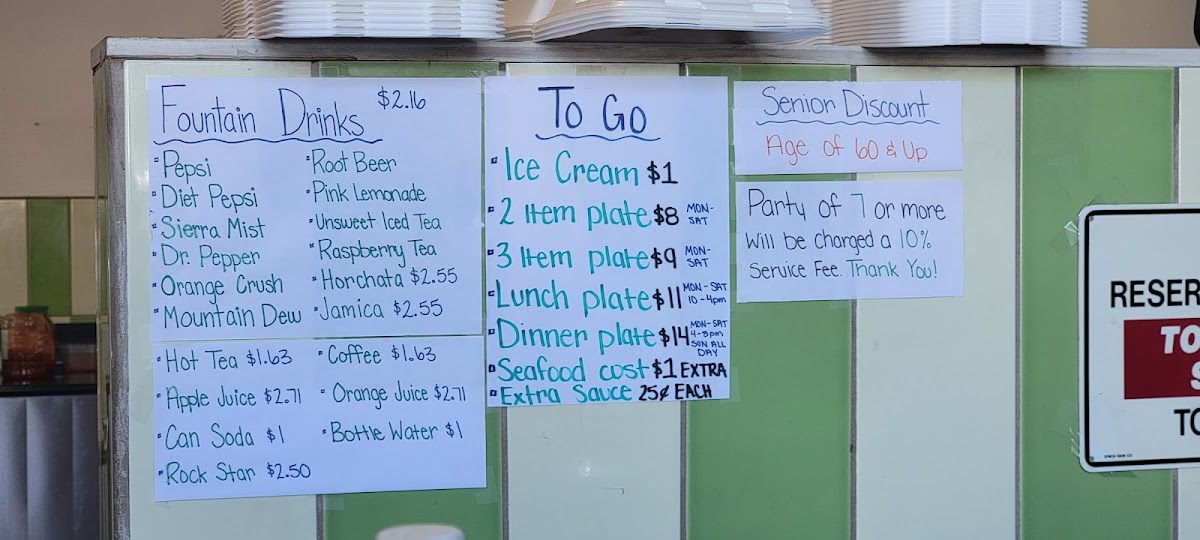 Fountain Drinks $2.16
· Pepsi
· Diet Pepsi
· Sierra Mist
· Dr. Pepper
· Orange Crush
· Mountain Dew
· Root Beer
· Pink Lemonade
· Unsweet Iced Tea
· Raspberry Tea
· Horchata $2.55
· Jamica $2.55
· Hot Tea $1.63
· Coffee $1.63
· Apple Juice $2.71
· Orange Juice $2.71
· Can Soda $1
· Bottle Water $1
· Rock Star $2.50
To Go
· Ice Cream $1
· 2 Item plate $8 MON-
SAT
· 3 Item plate $9 MON-
SAT
· Lunch plate $11 MON-SAT
10-4pm
· Dinner plate $14 MON-SAT
4-8pm
SUN ALL
DAY
· Seafood cost $1 EXTRA
· Extra Sauce 25¢ EACH
Senior Discount
Age of 60 & Up
Party of 7 or more
Will be charged a 10%
Service Fee. Thank You!
RESER
TO
TO